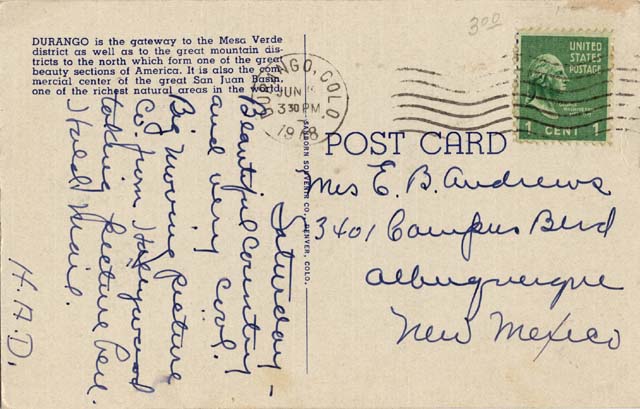 3 00
DURANGO is the gateway to the Mesa Verde
district as well as to the great mountain dis-
tricts to the north which form one of the great
beauty sections of America. It is also the com-
mercial center of the great San Juan Basin,
one of the richest natural areas in the world.
DURANGO, COLO.
JUN
3 30 PM
1948
UNITED
STATES
POSTAGE
1 CENT 1
POST CARD
SANBORN SOUVENIR CO., DENVER, COLO.
Saturday -
Beautiful Country
and very cool.
Big moving picture
Co. from Hollywood
taking picture here.
Hold mail.
H.A.D.
Mrs E. B. Andrews
3401 Campus Blvd
Albuquerque
New Mexico